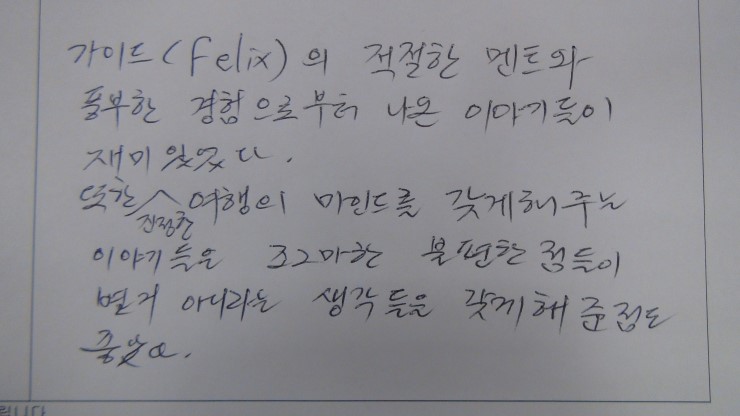 가이드(Felix)의 적절한 멘트와
풍부한 경험으로부터 나온 이야기들이
재미있었다.
또한 진정한 여행의 마인드를 갖게해주는
이야기들은 조그마한 불편한 점들이
별거 아니라는 생각들을 갖게해 준점도
좋았다.